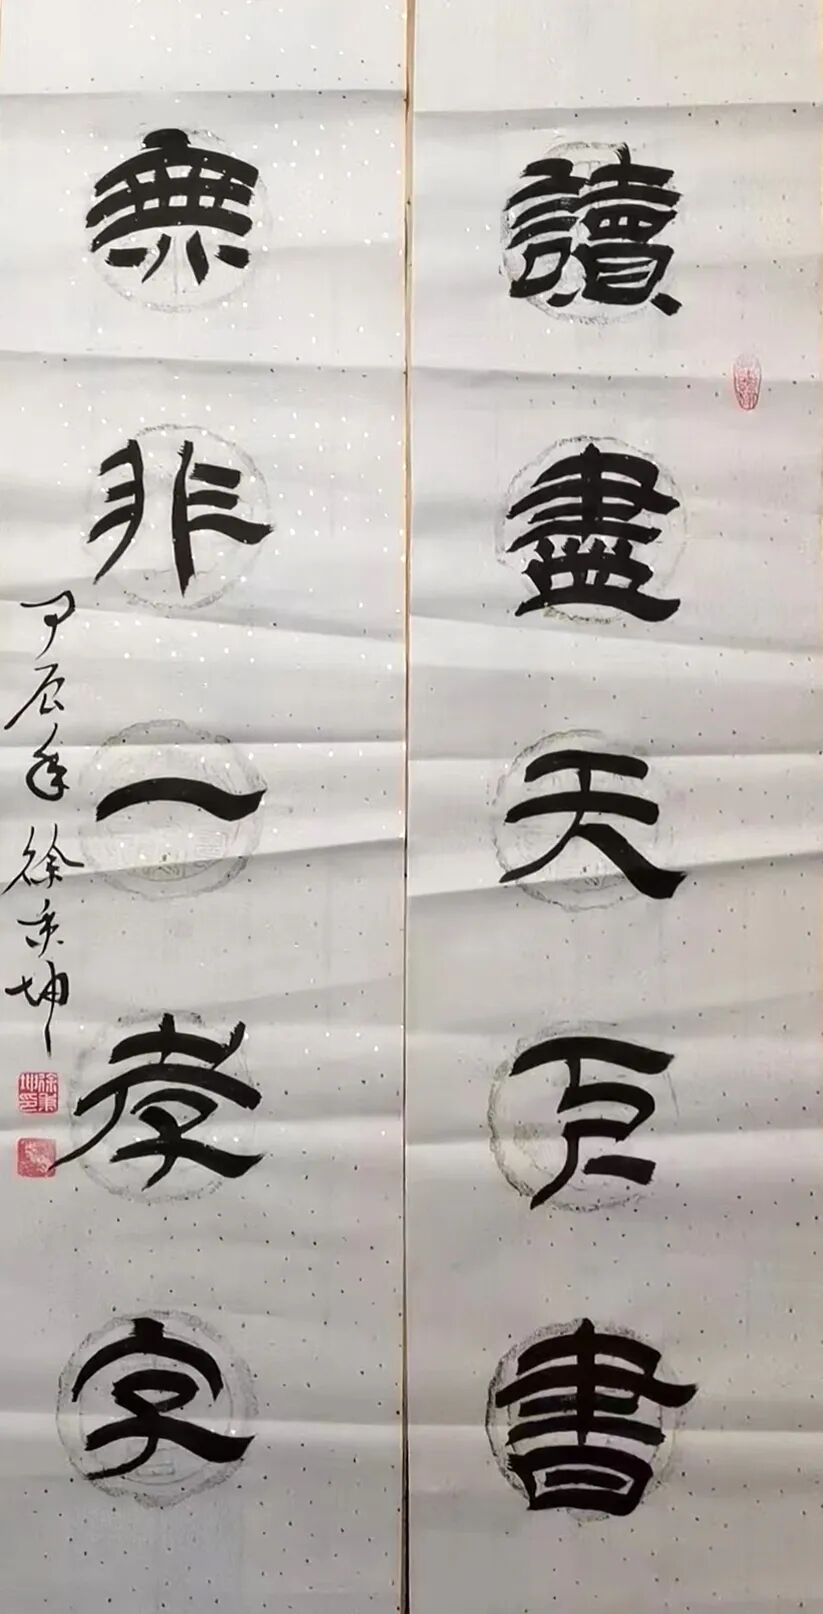 讀盡天下書
無非一孝字
甲辰年徐秉坤